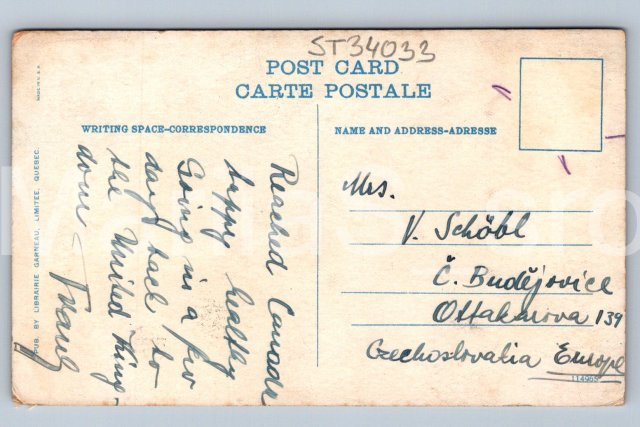 ST34033
POST CARD
CARTE POSTALE
WRITING SPACE-CORRESPONDENCE
NAME AND ADDRESS-ADRESSE
Reached Canada
happy healthy
Going in a few
days back to
the United King-
dom
Mrs.
V. Schöbl
Č. Budějovice
Ottakarova 139
Czechoslovakia Europe
PUB. BY LIBRAIRIE GARNEAU, LIMITEE, QUEBEC.
MADE IN U.S.A.